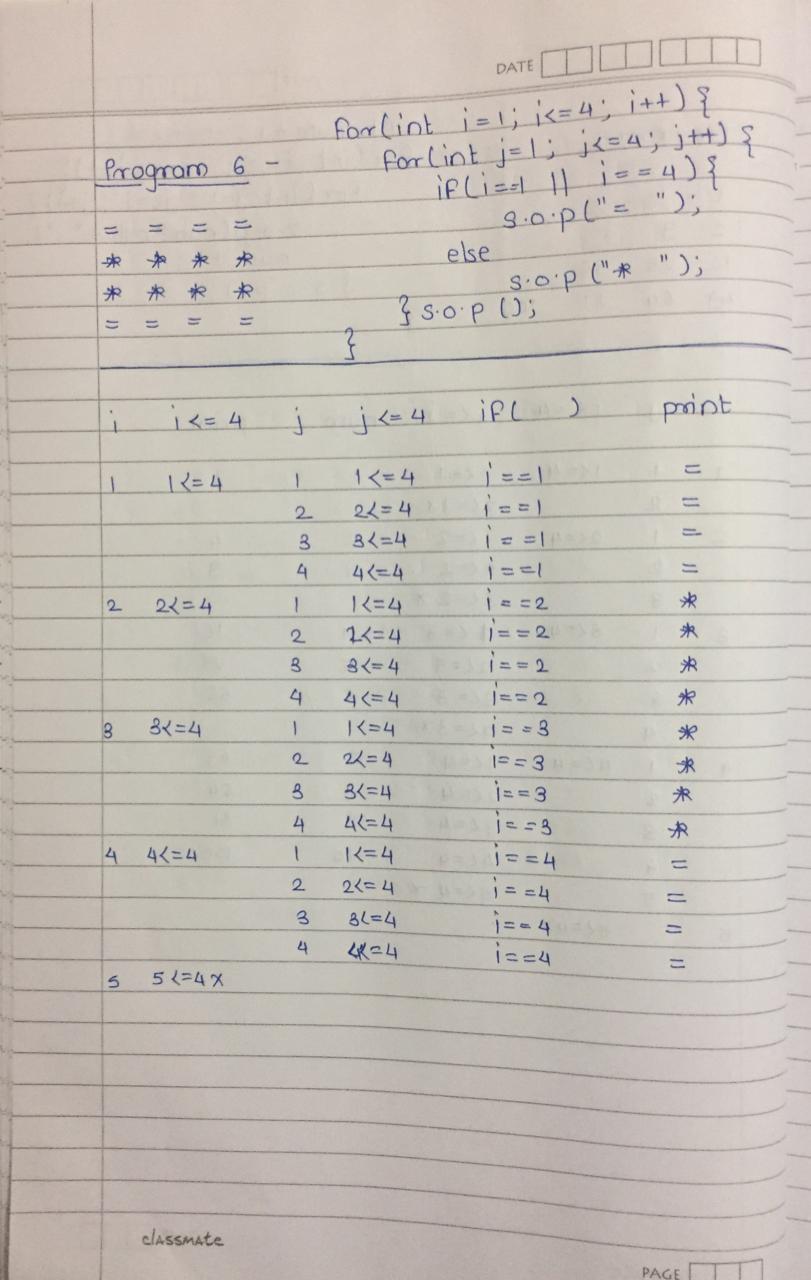 DATE
for(int i=1; i<=4; i++) {
Program 6 -
for(int j=1; j<=4; j++) {
if(i==1 || i==4) {
s.o.p("= ");
= = = =
else
* * * *
s.o.p ("* ");
* * * *
} s.o.p ();
= = = =
}
i i<=4 j j<=4 if( ) print
1 1<=4 1 1<=4 i==1 =
2 2<=4 i==1 =
3 3<=4 i==1 =
4 4<=4 i==1 =
2 2<=4 1 1<=4 i==2 *
2 2<=4 i==2 *
3 3<=4 i==2 *
4 4<=4 i==2 *
3 3<=4 1 1<=4 i==3 *
2 2<=4 i==3 *
3 3<=4 i==3 *
4 4<=4 i==3 *
4 4<=4 1 1<=4 i==4 =
2 2<=4 i==4 =
3 3<=4 i==4 =
4 4<=4 i==4 =
5 5<=4 x
classmate
PAGE